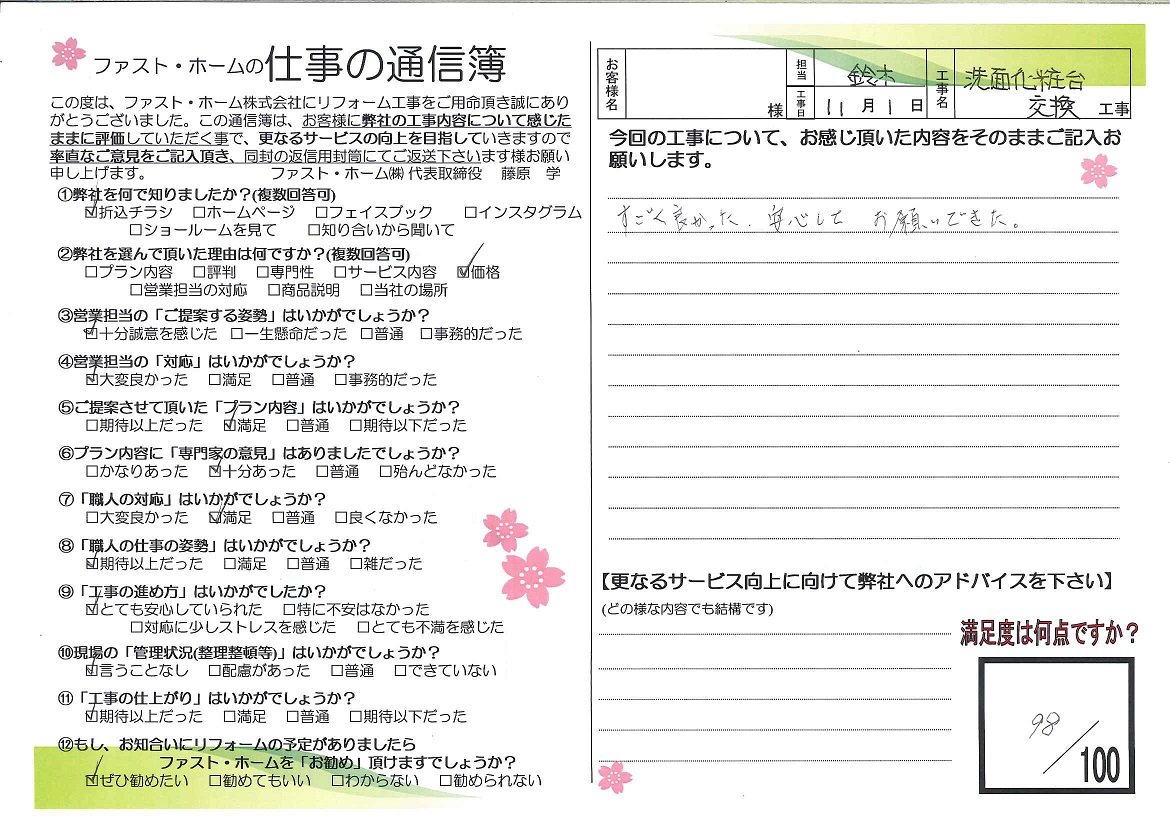 ファスト・ホームの仕事の通信簿
この度は、ファスト・ホーム株式会社にリフォーム工事をご用命頂き誠にあり
がとうございました。この通信簿は、お客様に弊社の工事内容について感じた
ままに評価していただく事で、更なるサービスの向上を目指していきますので
率直なご意見をご記入頂き、同封の返信用封筒にてご返送下さいます様お願い
申し上げます。 ファスト・ホーム㈱ 代表取締役 藤原 学
①弊社を何で知りましたか？(複数回答可)
☑折込チラシ □ホームページ □フェイスブック □インスタグラム
□ショールームを見て □知り合いから聞いて
②弊社を選んで頂いた理由は何ですか？(複数回答可)
□プラン内容 □評判 □専門性 □サービス内容 ☑価格
□営業担当の対応 □商品説明 □当社の場所
③営業担当の「ご提案する姿勢」はいかがでしょうか？
☑十分誠意を感じた □一生懸命だった □普通 □事務的だった
④営業担当の「対応」はいかがでしょうか？
☑大変良かった □満足 □普通 □事務的だった
⑤ご提案させて頂いた「プラン内容」はいかがでしょうか？
□期待以上だった ☑満足 □普通 □期待以下だった
⑥プラン内容に「専門家の意見」はありましたでしょうか？
□かなりあった ☑十分あった □普通 □殆んどなかった
⑦「職人の対応」はいかがでしょうか？
□大変良かった ☑満足 □普通 □良くなかった
⑧「職人の仕事の姿勢」はいかがでしょうか？
☑期待以上だった □満足 □普通 □雑だった
⑨「工事の進め方」はいかがでしたか？
☑とても安心していられた □特に不安はなかった
□対応に少しストレスを感じた □とても不満を感じた
⑩現場の「管理状況(整理整頓等)」はいかがでしょうか？
☑言うことなし □配慮があった □普通 □できていない
⑪「工事の仕上がり」はいかがでしょうか？
☑期待以上だった □満足 □普通 □期待以下だった
⑫もし、お知合いにリフォームの予定がありましたら
ファスト・ホームを「お勧め」頂けますでしょうか？
☑ぜひ勧めたい □勧めてもいい □わからない □勧められない
お客様名 様
担当 鈴木
工事日 11月1日
工事名 洗面化粧台
交換 工事
今回の工事について、お感じ頂いた内容をそのままご記入お
願いします。
すごく良かった。安心して お願いできた。
【更なるサービス向上に向けて弊社へのアドバイスを下さい】
(どの様な内容でも結構です)
満足度は何点ですか？
98/100